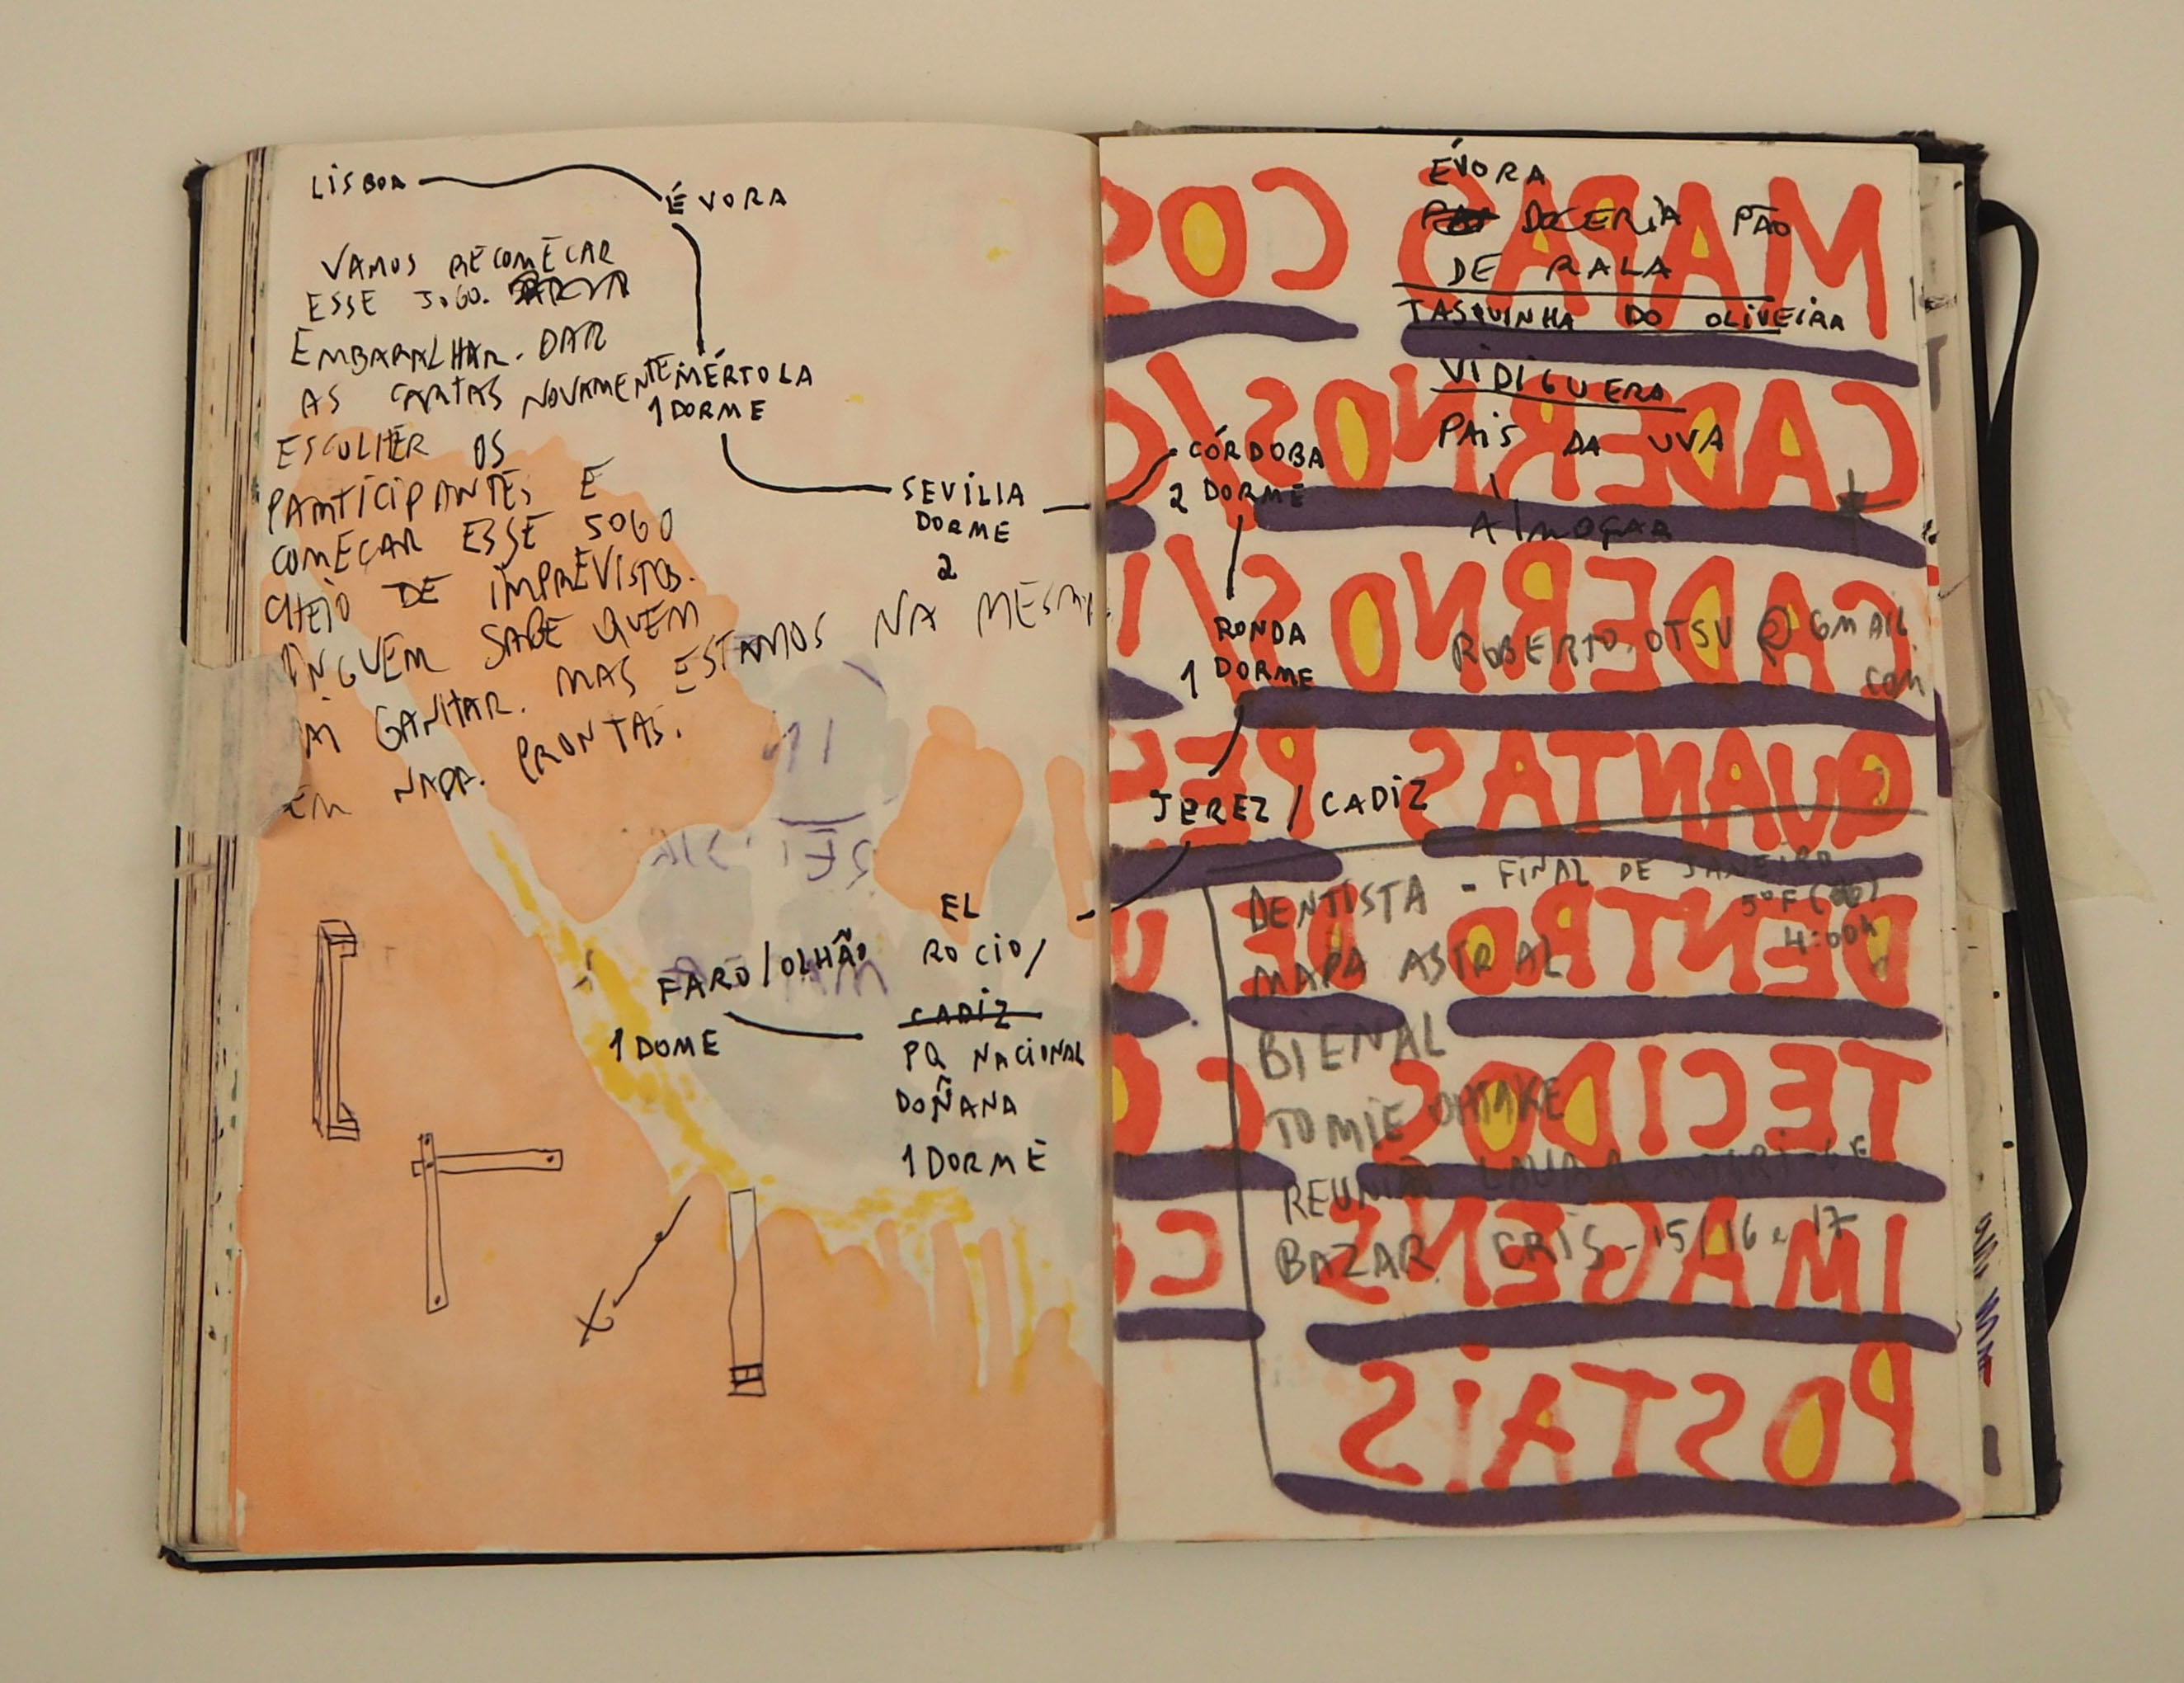 LISBOA
ÉVORA
VAMOS RECOMEÇAR
ESSE JOGO.
EMBARALHAR. DAR
AS CARTAS NOVAMENTE
ESCOLHER OS
PARTICIPANTES E
COMEÇAR ESSE JOGO
CHEIO DE IMPREVISTOS.
NINGUÉM SABE QUEM
GANHAR. MAS ESTAMOS NA MESMA
EM NADA. PRONTAS.
MÉRTOLA
1 DORME
SEVÍLIA
DORME
2
FARO/OLHÃO
1 DOME
EL
ROCIO/
CADIZ
PQ NACIONAL
DOÑANA
1 DORME
CÓRDOBA
2 DORME
RONDA
1 DORME
JEREZ/CADIZ
ÉVORA
DOCERIA PÃO
DE RALA
TASQUINHA DO OLIVEIRA
VIDIGUERA
PAIS DA UVA
AlMOÇAR
ROBERTO.OTSU@GMAIL.
COM
DENTISTA - FINAL DE JANEIRO
5ºF
4:00h
MAPA ASTRAL
BIENAL
TOMIE OHTAKE
REUNIÃO LAURA
BAZAR CRIS - 15/16 e 17
MAPAS COS
CADERNOS/C
CADERNOS/
QUANTAS PES
DENTRO DE U
TECIDOS CO
IMAGENS
POSTAIS